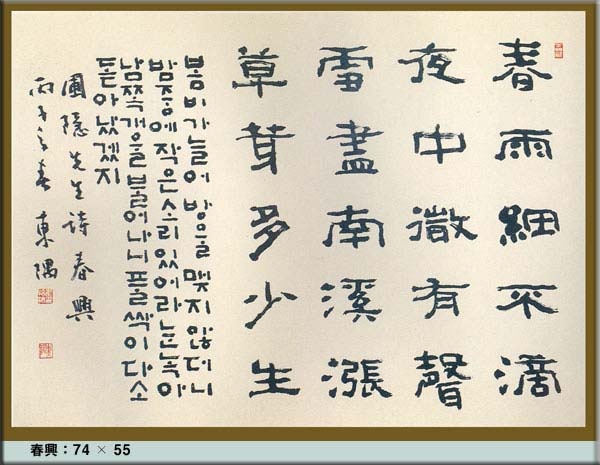 春雨細不滴
夜中微有聲
雪盡南溪漲
草芽多少生
봄비가늘어 방울 맺지 않더니
밤중에 작은소리 있어라 눈녹아
남쪽개울 불어나니 풀싹이 다소
돋아났겠지
圃隱先生詩 春興
丙子之春 東隅
春興 : 74 × 55